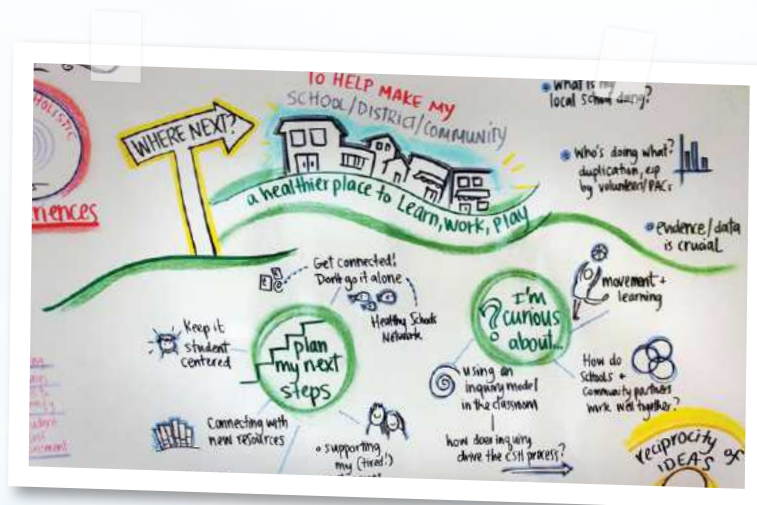 HOLISTIC
WHERE NEXT?
TO HELP MAKE MY
SCHOOL/DISTRICT/COMMUNITY
a healthier place to Learn, work, play
What is my
local school doing?
Who's doing what?
duplication, esp
by volunteers/PACs
evidence/data
is crucial
Get connected!
Don't go it alone
Healthy Schools
Network
Keep it
student
centered
plan
my next
steps
Connecting with
new resources
supporting
my (tired!)
I'm
curious
about...
?
movement +
learning
using an
inquiry model
in the classroom
how does inquiry
drive the CSH process?
How do
Schools +
community partners
work well together?
reciprocity
IDEAS